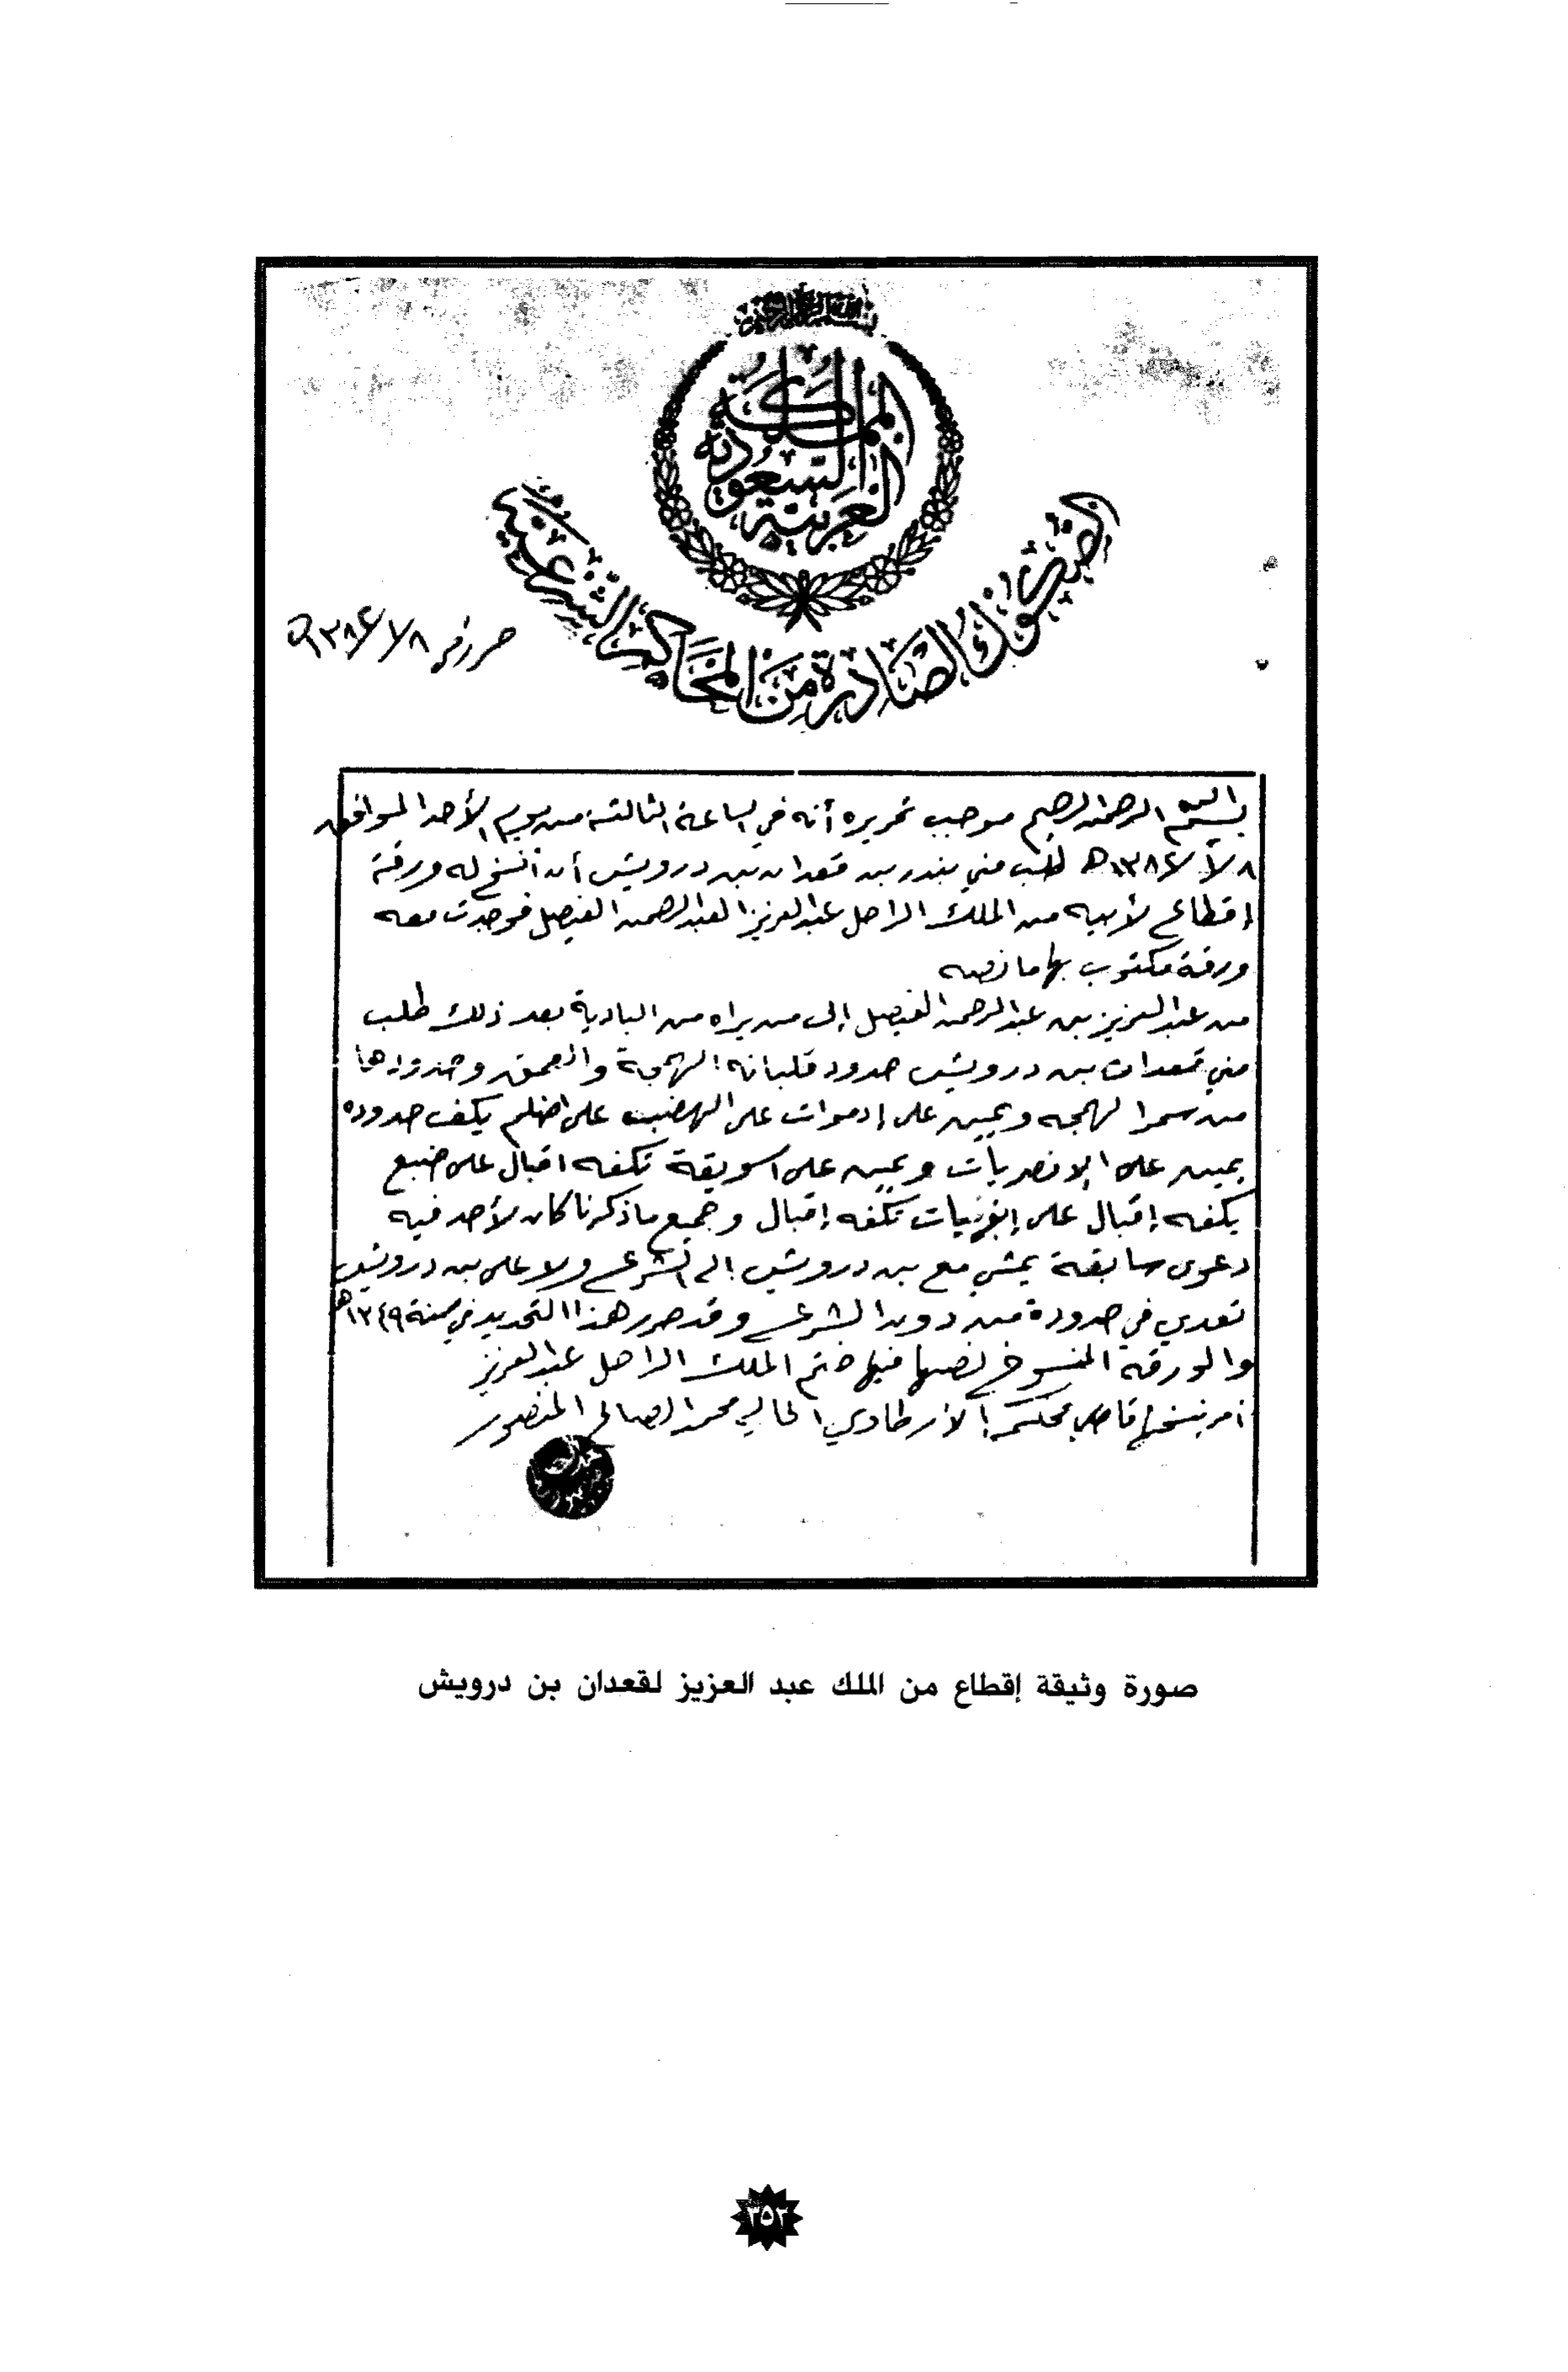 المملكة
العربية السعودية
الصكوك الصادرة من المحاكم الشرعية
حرر في ٨/٧/١٣٨٤هـ
بسم الله الرحمن الرحيم موجب تحريره أنه في الساعة الثالثة من يوم الأحد الموافق
٨/٧/١٣٨٤هـ طلب مني بندر بن قعدان بن درويش أن أنسخ له ورقة
إقطاع لأبيه من الملك الراحل عبدالعزيز العبدالرحمن الفيصل فوجدت معه
ورقة مكتوب بها ما نصه
من عبدالعزيز بن عبدالرحمن الفيصل إلى من يراه من البادية بعد ذلك طلب
مني قعدان بن درويش حدود قلبانه الهجمة والعمق وحدودها
من سمرا لهجمه ويمين على إدموات على الهضيب على اضلم يكف حدوده
يمين على الانصريات ويمين على اسويقة تكفه اقبال على ضبع
يكفه إقبال على تكفه إقبال وجميع ما ذكرنا كان لأحد فيه
دعوى سابقة يمشي مع بن درويش إلى الشرع ولا على بن درويش
تعدي في حدودة من دون الشرع وقد حرر هذا التحديد في سنة ١٣٤٩هـ
والورقة المنسوخ نصها فيها ختم الملك الراحل عبدالعزيز
أمر بنسخها قاضي محكمة الأرطاوي الحالي محمد الصالح المنصور
صورة وثيقة إقطاع من الملك عبد العزيز لقعدان بن درويش
٣٥٢